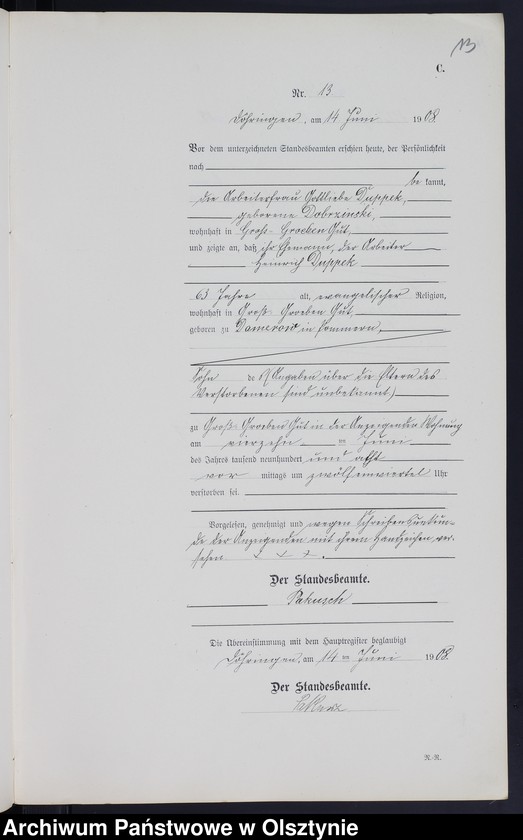 13
C.
Nr. 13
Döhringen, am 14 Juni 1908
Vor dem unterzeichneten Standesbeamten erschien heute, der Persönlichkeit
nach
be kannt,
die Arbeiterfrau Gottliebe Duppek,
geborene Dobrzinski,
wohnhaft in Groß-Groeben Gut,
und zeigte an, daß ihr Ehemann, der Arbeiter
Heinrich Duppek
63 Jahre alt, evangelischer Religion,
wohnhaft in Groß-Groeben Gut,
geboren zu Damerow in Pommern,
Sohn de (Angaben über die Eltern des
Verstorbenen sind unbekannt)
zu Groß-Groeben Gut in der Anzeigenden Wohnung
am vierzehn Juni
des Jahres tausend neunhundert und acht
vor mittags um zwölfeinviertel Uhr
verstorben sei.
Vorgelesen, genehmigt und wegen Schreibensunkun-
de der Anzeigenden mit ihrem Handzeichen ver-
sehen + + +.
Der Standesbeamte.
Die Übereinstimmung mit dem Hauptregister beglaubigt
Döhringen, am 14 Juni 1908.
Der Standesbeamte.
R.-R.
Archiwum Państwowe w Olsztynie